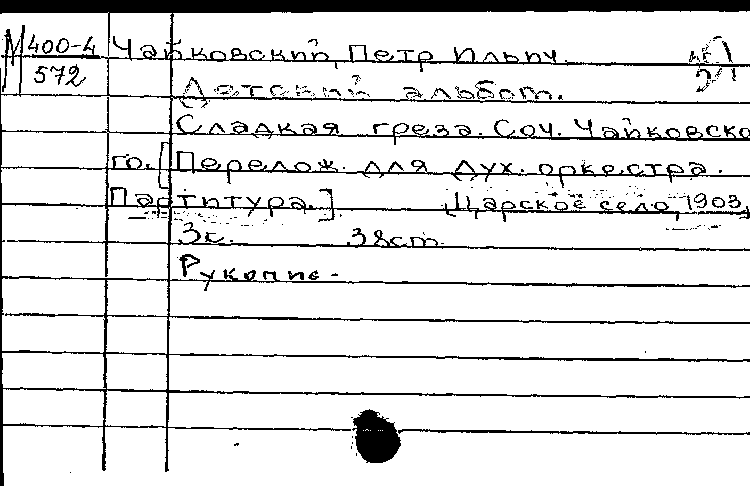 М 400-4 Чайковский, Петр Ильич.
572
Детский альбом.
Сладкая греза. Соч. Чайковско
го. [Перелож. для дух. оркестра.
Партитура.] [Царское село, 1903,
3с. 38см.
Рукопис-